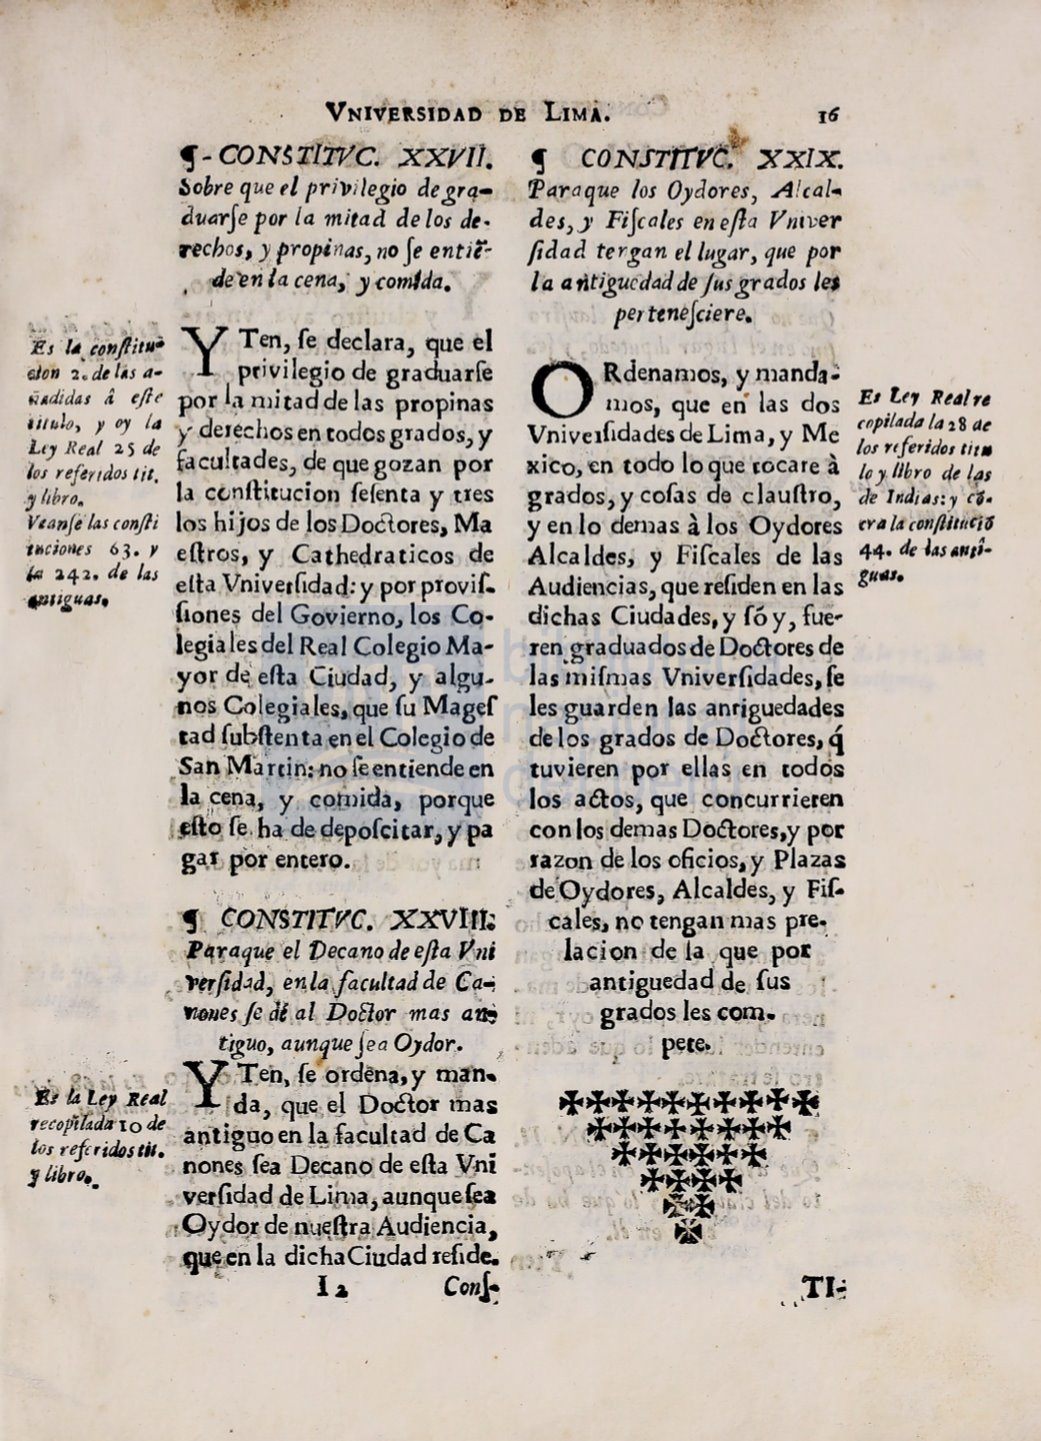 VNIVERSIDAD DE LIMA.
16
¶-CONSTITVC. XXVII.
Sobre que el privilegio de gra-
duarſe por la mitad de los de-
rechos, y propinas, no ſe entiē-
de en la cena, y comida.
YTen, ſe declara, que el
privilegio de graduarſe
por la mitad de las propinas
y derechos en todos grados, y
facultades, de que gozan por
la conſtitucion ſeſenta y tres
los hijos de los Doctores, Ma
eſtros, y Cathedraticos de
eſta Vniverſidad: y por proviſ-
ſiones del Govierno, los Co-
legiales del Real Colegio Ma-
yor de eſta Ciudad, y algu-
nos Colegiales, que ſu Mageſ
tad ſubſtenta en el Colegio de
San Martin: no ſe entiende en
la cena, y comida, porque
eſto ſe ha de depoſcitar, y pa
gar por entero.
Es la conſtitu-
cion 2. de las a-
ñadidas â eſte
titulo, y oy la
Ley Real 25 de
los referidos tit.
y libro.
Veanſe las conſti
tuciones 63. y
la 242. de las
antiguas.
¶ CONSTITVC. XXVIII.
Paraque el Decano de eſta Vni
verſidad, en la facultad de Ca-
nones ſe dé al Doctor mas an-
tiguo, aunque ſea Oydor.
YTen, ſe ordena, y man-
da, que el Doctor mas
antiguo en la facultad de Ca
nones ſea Decano de eſta Vni
verſidad de Lima, aunque ſea
Oydor de nueſtra Audiencia,
que en la dicha Ciudad reſide.
Es la Ley Real
recopilada 10 de
los referidos tit.
y libro.
I2
Conſ-
¶ CONSTITVC. XXIX.
Paraque los Oydores, Alcal-
des, y Fiſcales en eſta Vniver
ſidad tergan el lugar, que por
la antiguedad de ſus grados les
perteneſciere.
ORdenamos, y manda-
mos, que en las dos
Vniverſidades de Lima, y Me
xico, en todo lo que tocare à
grados, y coſas de clauſtro,
y en lo demas à los Oydores
Alcaldes, y Fiſcales de las
Audiencias, que reſiden en las
dichas Ciudades, y ſó y, fue-
ren graduados de Doctores de
las miſmas Vniverſidades, ſe
les guarden las antiguedades
de los grados de Doctores, q́
tuvieren por ellas en todos
los actos, que concurrieren
con los demas Doctores, y por
razon de los oficios, y Plazas
de Oydores, Alcaldes, y Fiſ-
cales, no tengan mas pre-
lacion de la que por
antiguedad de ſus
grados les com-
pete.
Es Ley Real re
copilada la 28 de
los referidos titu
lo y libro de las
de Indias: y cō-
cra la conſtituciō
44. de las anti-
guas.
TI-